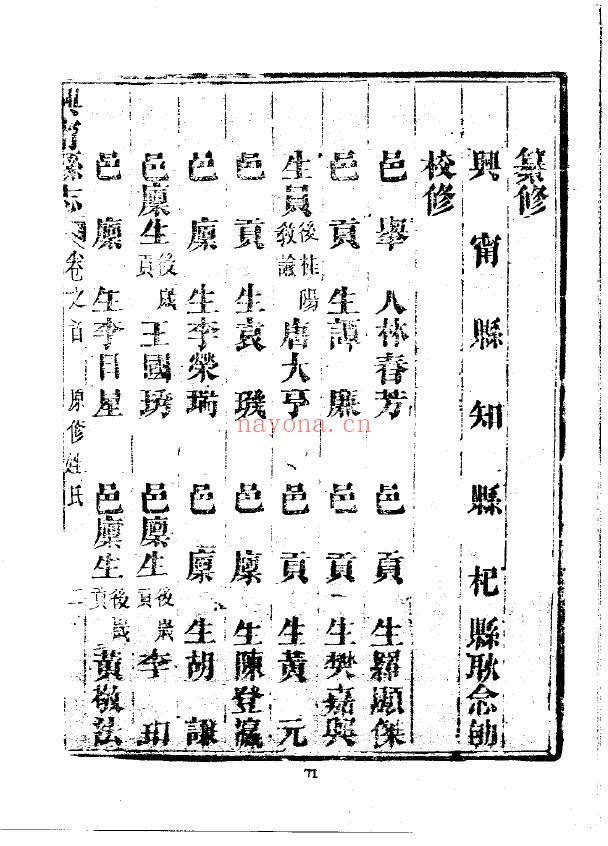 纂修
興甯縣知縣杞縣耿念劬
校修
邑舉人林春芳 邑貢生羅顯傑
邑貢生譚廉 邑貢生樊嘉興
生員後桂陽教諭唐大亨 邑貢生黃元
邑貢生袁璣 邑廩生陳登瀛
邑廩生李榮瑞 邑廩生胡謙
邑廩生後歲貢王國琇 邑廩生後歲貢李
邑廩生李日星 邑廩生後歲貢黃敬法
興甯縣志 卷之首 原修姓氏 二
71
nayona.cn